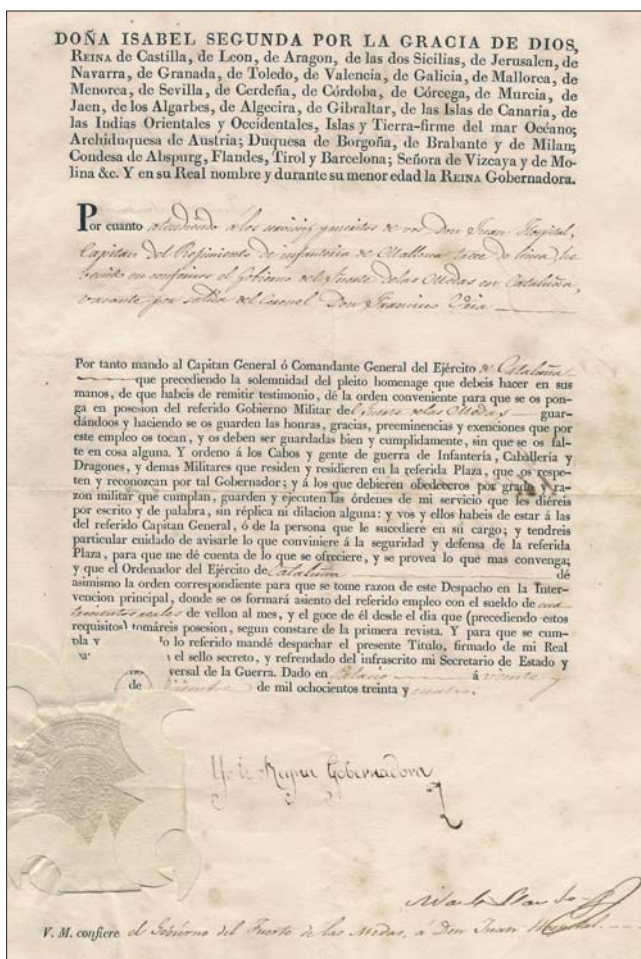 DOÑA ISABEL SEGUNDA POR LA GRACIA DE DIOS,
REINA de Castilla, de Leon, de Aragon, de las dos Sicilias, de Jerusalen, de
Navarra, de Granada, de Toledo, de Valencia, de Galicia, de Mallorca, de
Menorca, de Sevilla, de Cerdeña, de Córdoba, de Córcega, de Murcia, de
Jaen, de los Algarbes, de Algecira, de Gibraltar, de las Islas de Canaria, de
las Indias Orientales y Occidentales, Islas y Tierra-firme del mar Océano;
Archiduquesa de Austria; Duquesa de Borgoña, de Brabante y de Milan;
Condesa de Abspurg, Flandes, Tirol y Barcelona; Señora de Vizcaya y de Mo-
lina &c. Y en su Real nombre y durante su menor edad la REINA Gobernadora.
Por cuanto atendiendo á los servicios y méritos de vos Don Juan Hospital,
Capitan del Regimiento de infanteria de Mallorca trece de linea, he
venido en conferiros el Gobierno del Fuerte de las Medas en Cataluña,
vacante por salida del Coronel Don Francisco
Por tanto mando al Capitan General ó Comandante General del Ejército de Cataluña
que precediendo la solemnidad del pleito homenage que debeis hacer en sus
manos, de que habeis de remitir testimonio, dé la orden conveniente para que se os pon-
ga en posesion del referido Gobierno Militar del fuerte de las Medas guar-
dándoos y haciendo se os guarden las honras, gracias, preeminencias y exenciones que por
este empleo os tocan, y os deben ser guardadas bien y cumplidamente, sin que se os fal-
te en cosa alguna. Y ordeno á los Cabos y gente de guerra de Infantería, Caballería y
Dragones, y demas Militares que residen y residieren en la referida Plaza, que os respe-
ten y reconozcan por tal Gobernador; y á los que debieren obedeceros por grado y ra-
zon militar que cumplan, guarden y ejecuten las órdenes de mi servicio que les diéreis
por escrito y de palabra, sin réplica ni dilacion alguna: y vos y ellos habeis de estar á las
del referido Capitan General, ó de la persona que le sucediere en su cargo; y tendreis
particular cuidado de avisarle lo que conviniere á la seguridad y defensa de la referida
Plaza, para que me dé cuenta de lo que se ofreciere, y se provea lo que mas convenga;
y que el Ordenador del Ejército de Cataluña dé
asimismo la orden correspondiente para que se tome razon de este Despacho en la Inter-
vencion principal, donde se os formará asiento del referido empleo con el sueldo de cua-
trocientos reales de vellon al mes, y el goce de él desde el dia que (precediendo estos
requisitos) tomáreis posesion, segun constare de la primera revista. Y para que se cum-
pla y lo referido mandé despachar el presente Título, firmado de mi Real
el sello secreto, y refrendado del infrascrito mi Secretario de Estado y
versal de la Guerra. Dado en Palacio á veinte y
de de mil ochocientos treinta y cuatro.
Yo la Reyna Gobernadora
V. M. confiere el Gobierno del Fuerte de las Medas, a Don Juan Hospital